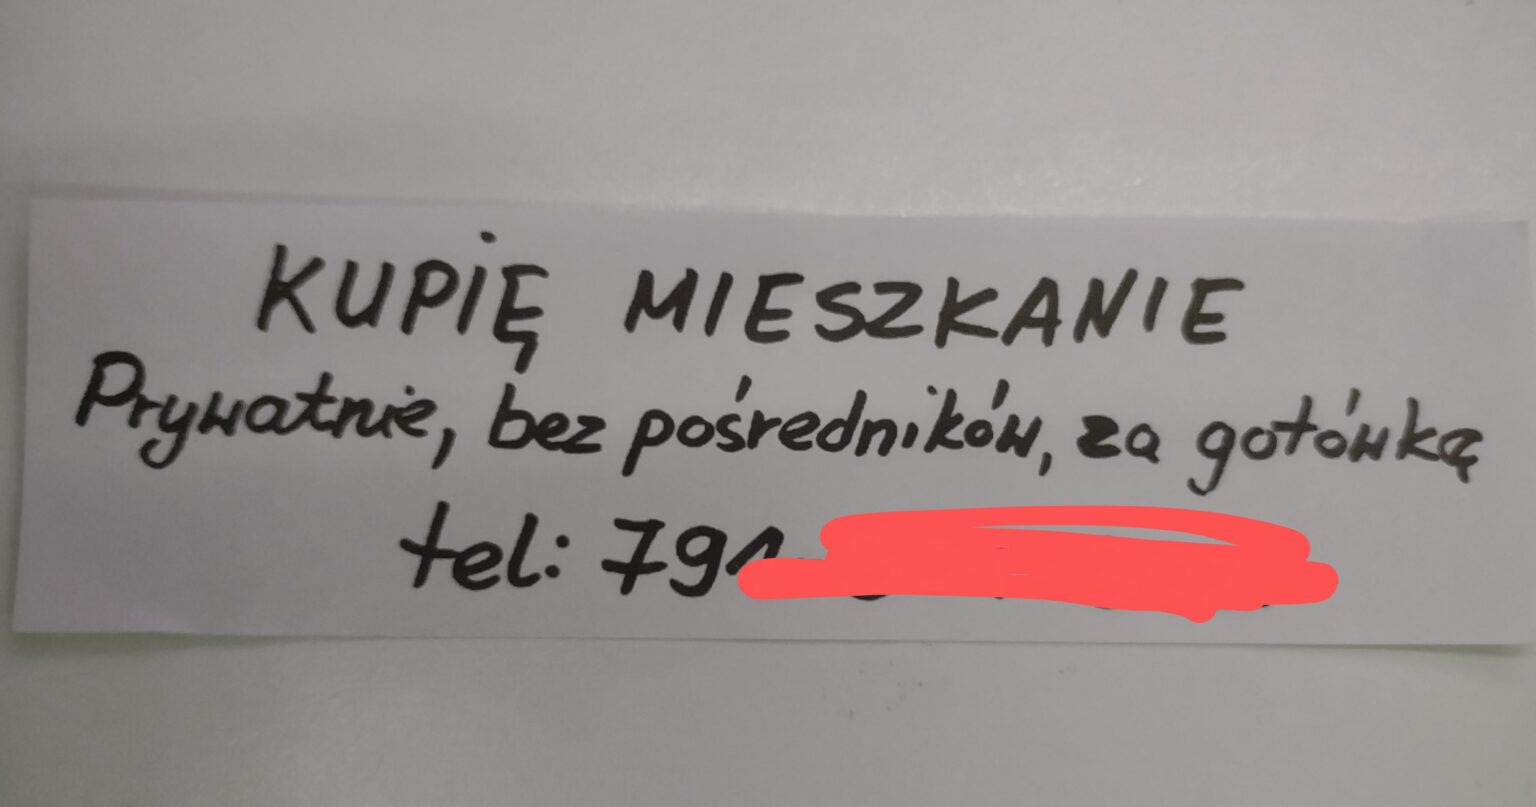 KUPIĘ MIESZKANIE
Prywatnie, bez pośredników, za gotówką
tel: 791